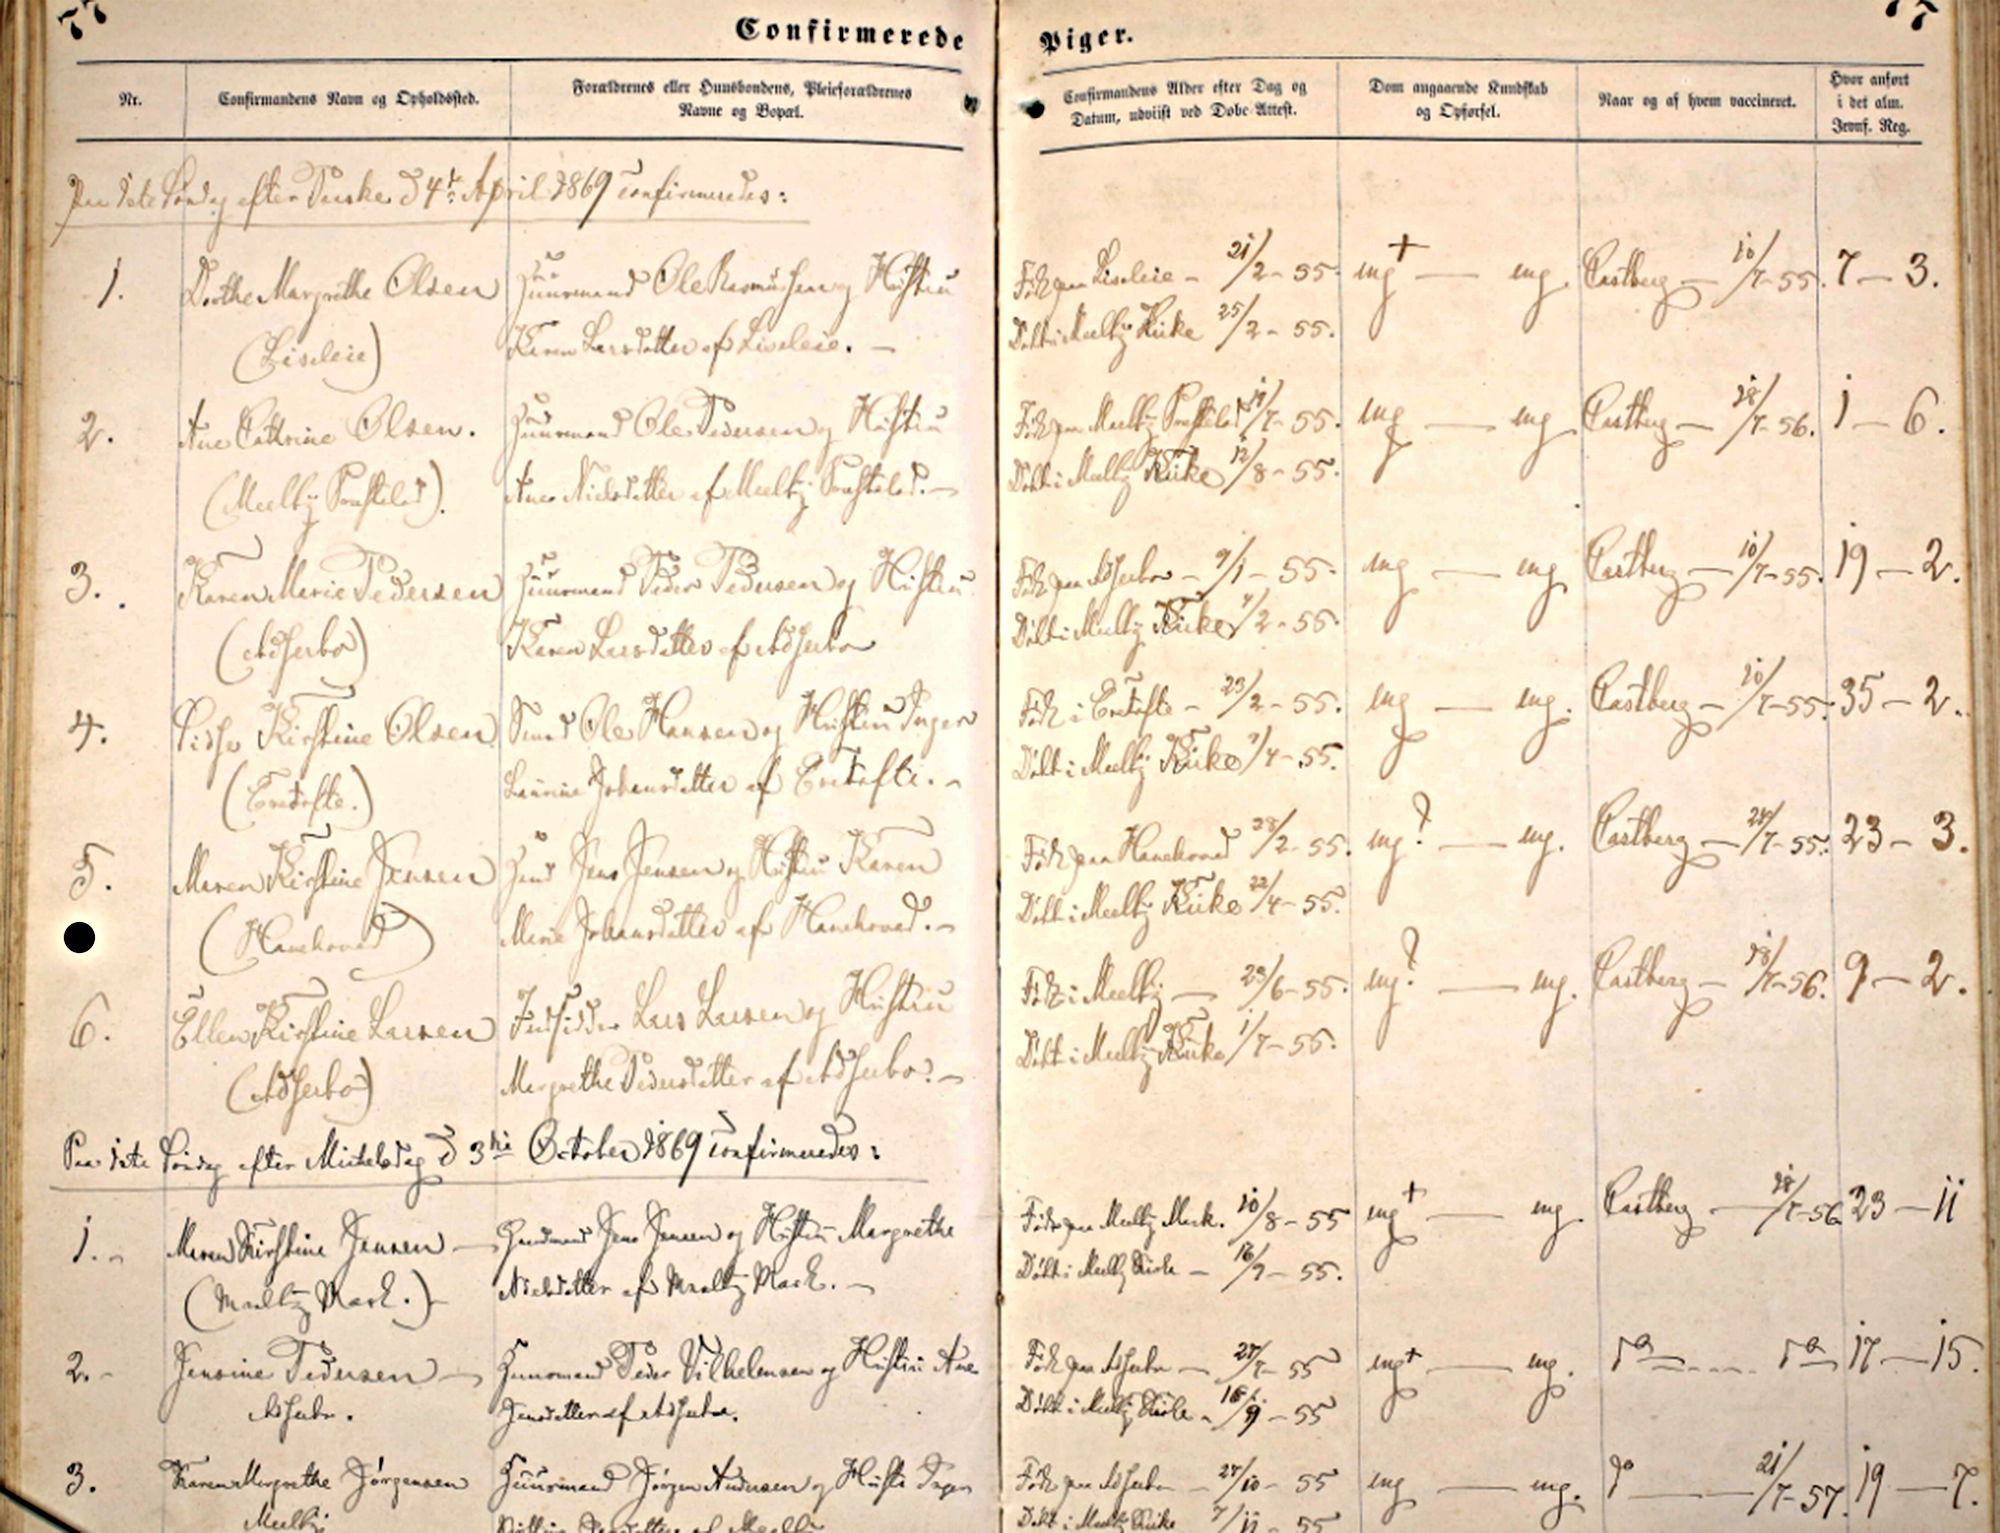 77
Confirmerede Piger.
77
Nr.
Confirmandens Navn og Opholdssted.
Forældrenes eller Huusbondens, Pleieforældrenes
Navne og Bopæl.
Confirmandens Alder efter Dag og
Datum, udviist ved Døbe-Attest.
Dom angaaende Kundskab
og Opførsel.
Naar og af hvem vaccineret.
Hvor anført
i det alm.
Jevnf. Reg.
Paa 1ste Søndag efter Paaske d 4de April 1869 confirmeredes:
1. Dorthe Margrethe Olsen Huusmand Ole Rasmussen og Hustru Født paa Liseleie – 21/2 – 55. mg+ — mg. Castberg – 10/7 – 55. 7 – 3.
(Liseleie) Karen Larsdatter af Liseleie. – Døbt i Melby Kirke 25/2 – 55.
2. Ane Cathrine Olsen. Huusmand Ole Pedersen og Hustru Født paa Melby 7 – 55. mg — mg. Castberg – 18/7 – 56. 1 – 6.
Ane Nielsdatter af Melby Døbt i Melby Kirke 12/8 – 55.
3. Karen Marie Pedersen Huusmand Peder Pedersen og Hustru Født paa Asserbo – 9/1 – 55. mg — mg Castberg – 10/7 – 55. 19 – 2.
(Asserbo) Karen Larsdatter af Asserbo Døbt i Melby Kirke 2 – 55.
4. Sidse Kirstine Olsen Ole Hansen og Hustru Inger Født i Evetofte – 23/2 – 55. mg — mg. Castberg – 10/7 – 55. 35 – 2.
(Evetofte.) Laurine Johansdatter af Evetofte. – Døbt i Melby Kirke 4 – 55.
5. Maren Kirstine Jensen Jens Jensen og Hustru Karen Født paa Hanehoved 28/2 – 55. mg? — mg. Castberg – 7 – 55. 23 – 3.
(Hanehoved) Marie Johansdatter af Hanehoved. – Døbt i Melby Kirke 22/4 – 55.
6. Ellen Kirstine Larsen Indsidder Lars Larsen og Hustru Født i Melby — 23/6 – 55. mg? — mg. Castberg – 18/7 – 56. 9 – 2.
(Asserbo) Margrethe Pedersdatter af Asserbo. – Døbt i Melby Kirke 1/7 – 55.
Paa 1ste Søndag efter Mickelsdag d 3die October 1869 confirmeredes:
1. Maren Kirstine Jensen — Gaardmand Jens Jensen og Hustru Margrethe Født paa Melby Mark. 10/8 – 55 mg+ — mg. Castberg — 18/7 – 56 23 – 11
(Melby Mark.) Nielsdatter af Melby Mark. – Døbt i Melby Kirke – 16/9 – 55.
2. Jensine Pedersen — Huusmand Peder Vilhelmsen og Hustru Ane Født paa Asserbo — 7 – 55 mg+ — mg. do — do 17 – 15.
Asserbo. Jensdatter af Asserbo. Døbt i Melby Kirke – 16/9 – 55
3. Karen Margrethe Jørgensen Huusmand Jørgen Andersen og Hustru Inger Født paa Asserbo – 10 – 55 mg — mg. do — 21/7 – 57. 19 – 7.
Melby Døbt i Melby Kirke 7/11 – 55